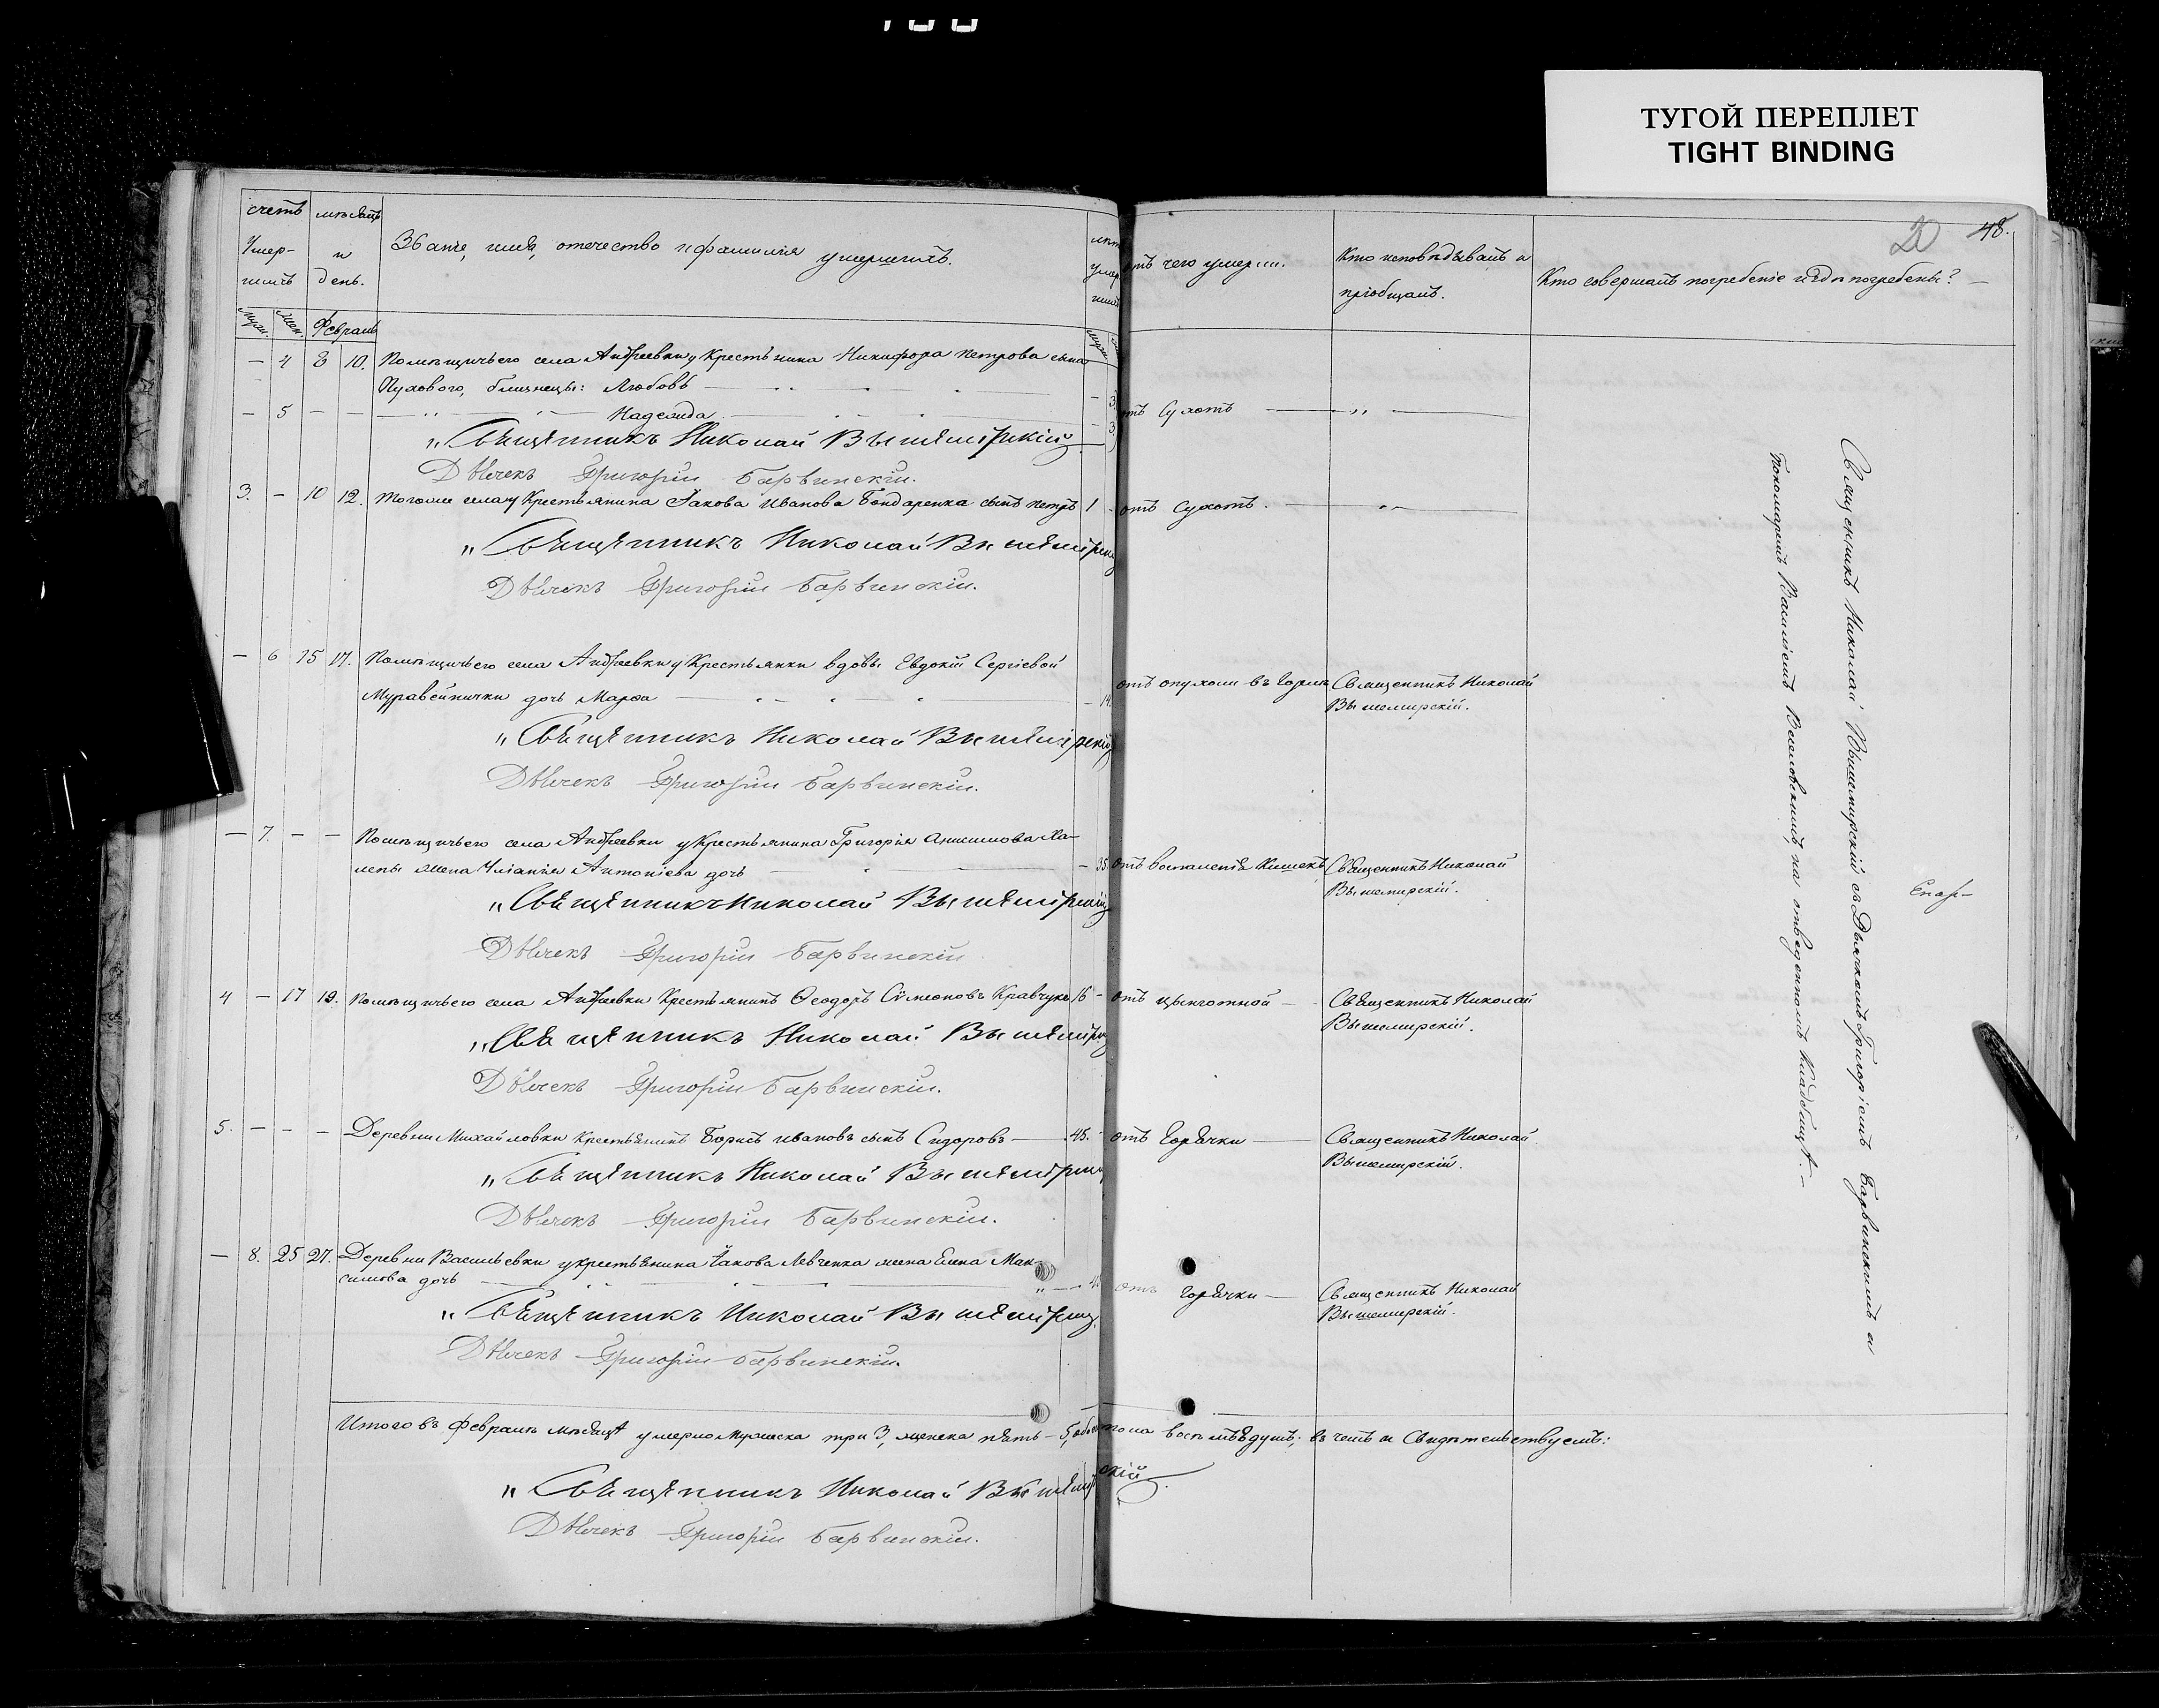 ТУГОЙ ПЕРЕПЛЕТ
TIGHT BINDING
20 48.
счетъ
Умер-
шихъ
муж. жен.
мѣсяцъ
и
день.
Февраль
Званіе, имя, отечество и фамилія умершихъ.
отъ чего умерли.
Кто исповѣдывалъ и
пріобщалъ.
Кто совершалъ погребеніе и гдѣ погребены?
— 4 8 10. Помѣщичьего села Андреевки у Крестьянина Никифора Петрова сына
Пухового, близнецы: Любовь — 3
— 5 — — Надежда — 3 отъ Сухотъ — „ —
„Священникъ Николай Вышемірскій
Дьячекъ Григорій Барвинскій.
3. — 10 12. Тогоже села у Крестьянина Іакова Иванова Бондаренка сынъ Петръ 1 - отъ Сухотъ. — „ —
„Священникъ Николай Вышемірскій
Дьячекъ Григорій Барвинскій.
— 6 15 17. Помѣщичьего села Андреевки у Крестьянки вдовы Евдокіи Сергіевой
Муравейнички дочь Марѳа — 14. отъ опухоли въ Горлѣ Священникъ Николай
Вышемирскій.
„Священникъ Николай Вышемірскій
Дьячекъ Григорій Барвинскій.
— 7. — — Помѣщичьего села Андреевки у Крестьянина Григорія Анисимова Ха-
лепы жена Уліанія Антоніева дочь — 35 отъ воспаленія Кишекъ Священникъ Николай
Вышемирскій.
„Священникъ Николай Вышемірскій
Дьячекъ Григорій Барвинскій
4 — 17 19. Помѣщичьего села Андреевки Крестьянинъ Ѳеодоръ Сѵмеоновъ Кравчукъ 16 - отъ цынготной — Священникъ Николай
Вышемирскій.
„Священникъ Николай Вышемір
Дьячекъ Григорій Барвинскій.
5. — — — Деревни Михайловки Крестьянинъ Борисъ Ивановъ сынъ Сидоровъ — 45. отъ Горячки — Священникъ Николай
Вышемирскій.
„Священникъ Николай Вышемірскій
Дьячекъ Григорій Барвинскій.
— 8. 25 27. Деревни Васильевки у крестьянина Іакова Левченка жена Елена Мак-
симова дочь — „ — отъ Горячки — Священникъ Николай
Вышемирскій.
„Священникъ Николай Вышемірскій
Дьячекъ Григорій Барвинскій.
Священникъ Николай Вышемирскій съ Дьячкомъ Григоріемъ Барвинскимъ и
Пономаремъ на отведенномъ Кладбищѣ. —
Итого въ Февралѣ мѣсяцѣ умерло мужеска три 3, женска пять — 5, обоего пола восемь душъ; въ чемъ и Свидѣтельствуемъ:
„Священникъ Николай Вышемірскій
Дьячекъ Григорій Барвинскій.